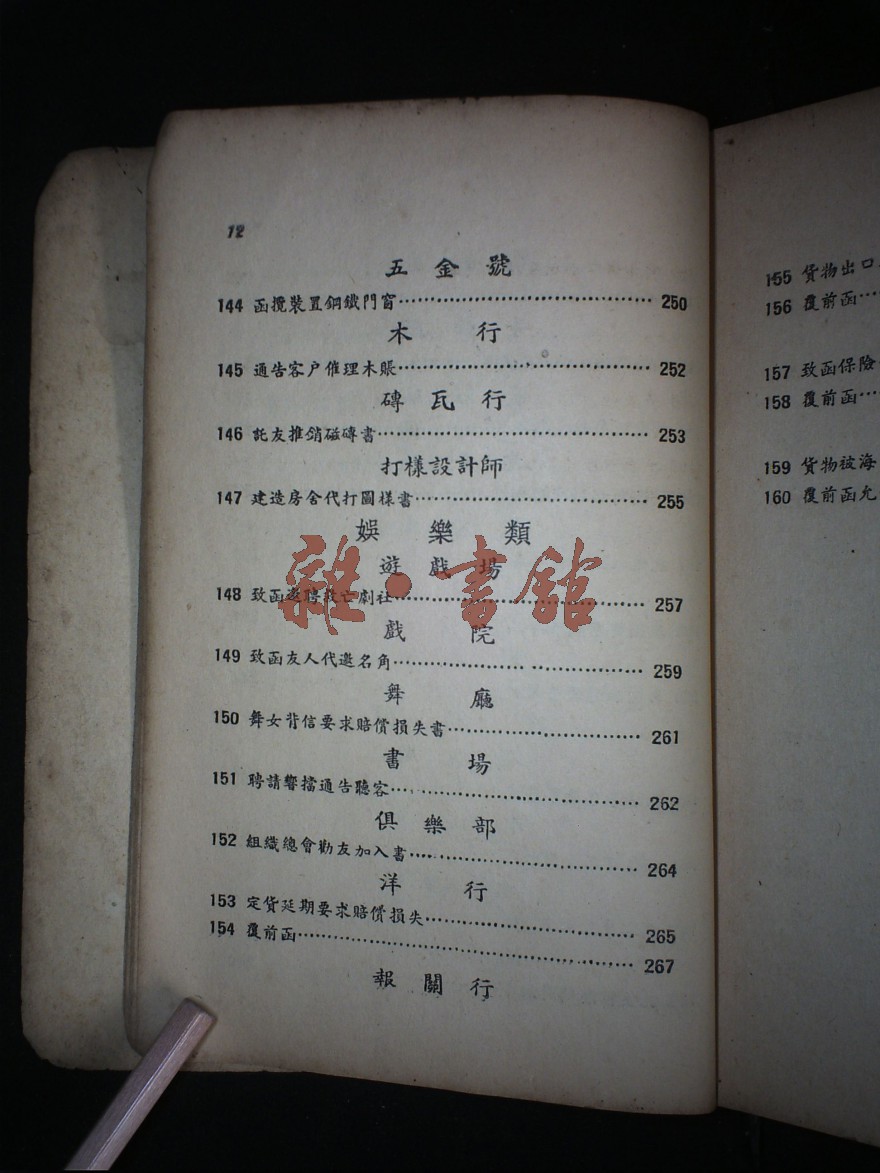 12
五金號
144 函攬裝置鋼鐵門窗 250
木行
145 通告客户催理木賬 252
磚瓦行
146 託友推銷磁磚書 253
打樣設計師
147 建造房舍代打圖樣書 255
娛樂類
遊戲場
148 致函邀聘救亡劇社 257
戲院
149 致函友人代邀名角 259
舞廳
150 舞女背信要求賠償損失書 261
書場
151 聘請響擋通告聽客 262
俱樂部
152 組織總會勸友加入書 264
洋行
153 定貨延期要求賠償損失 265
154 覆前函 267
報關行
雜·書館
155 貨物出口
156 覆前函
157 致函保險
158 覆前函
159 貨物被海
160 覆前函允